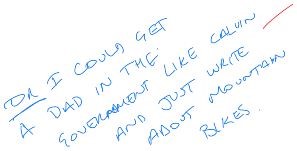 OR I COULD GET
A DAD IN THE
GOVERNMENT LIKE CALVIN
AND JUST WRITE
ABOUT MOUNTAIN
BIKES.